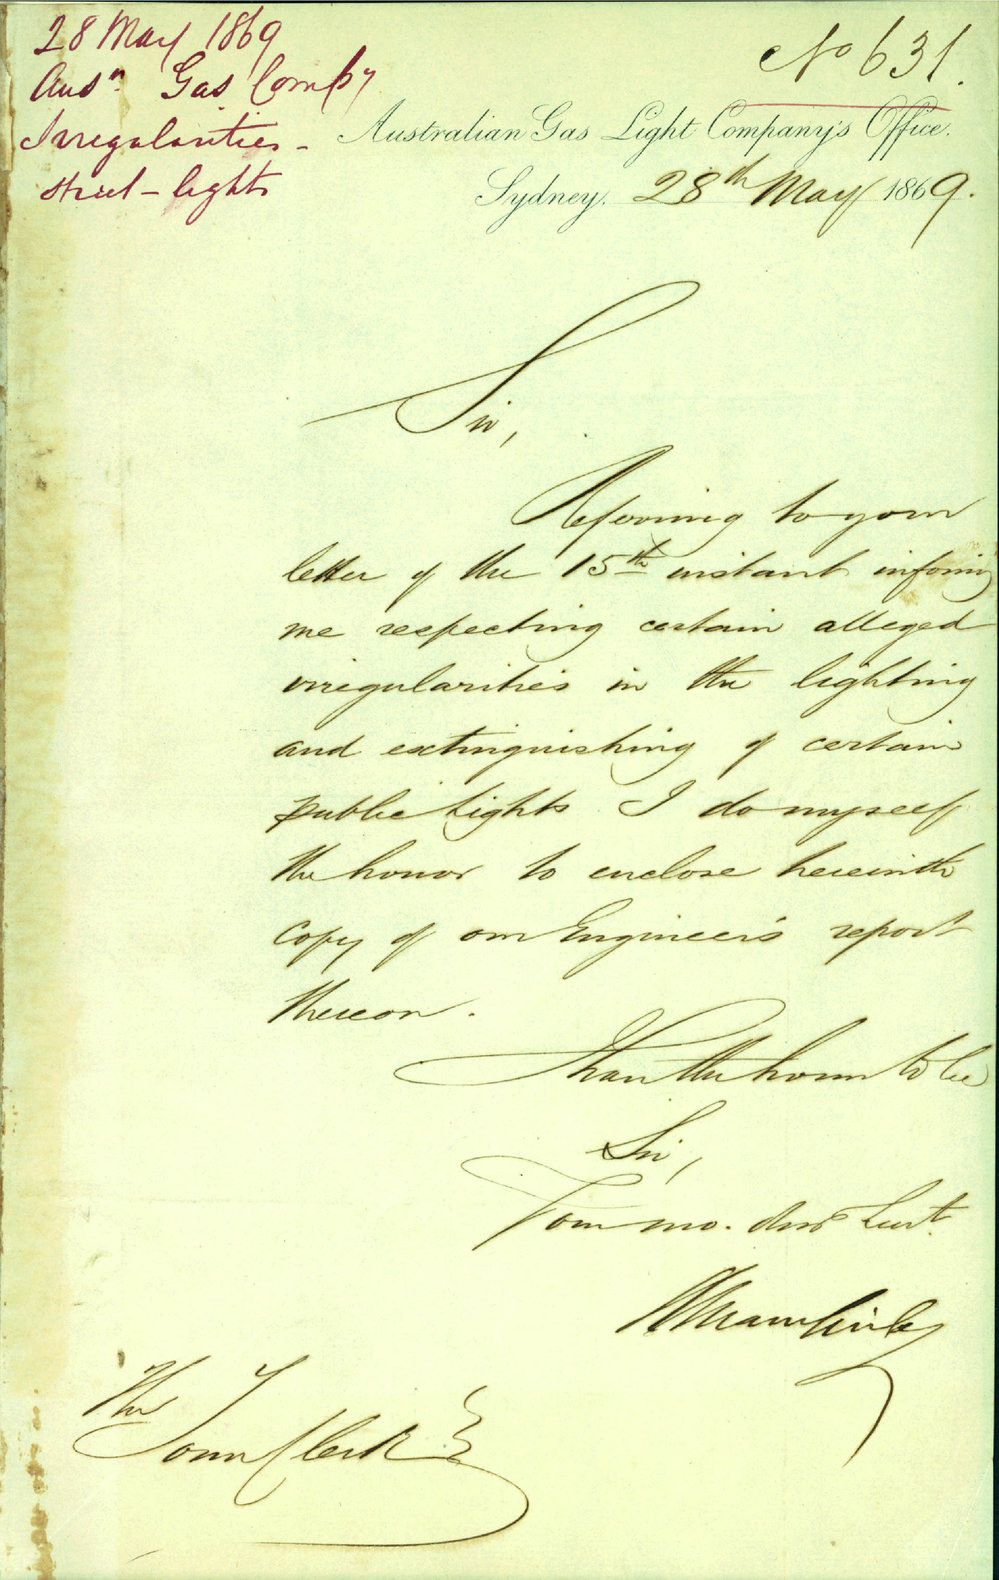 28 May 1869
Ausn. Gas Compy
Irregularities -
street-lights
No 631.
Australian Gas Light Company's Office.
Sydney. 28th May 1869.
Sir,
Referring to your
letter of the 15th instant informing
me respecting certain alleged
irregularities in the lighting
and extinguishing of certain
public lights I do myself
the honor to enclose herewith
copy of our Engineer's report
thereon.
I have the honor to be
Sir,
Your mo. obed Servt.
The
Town Clerk